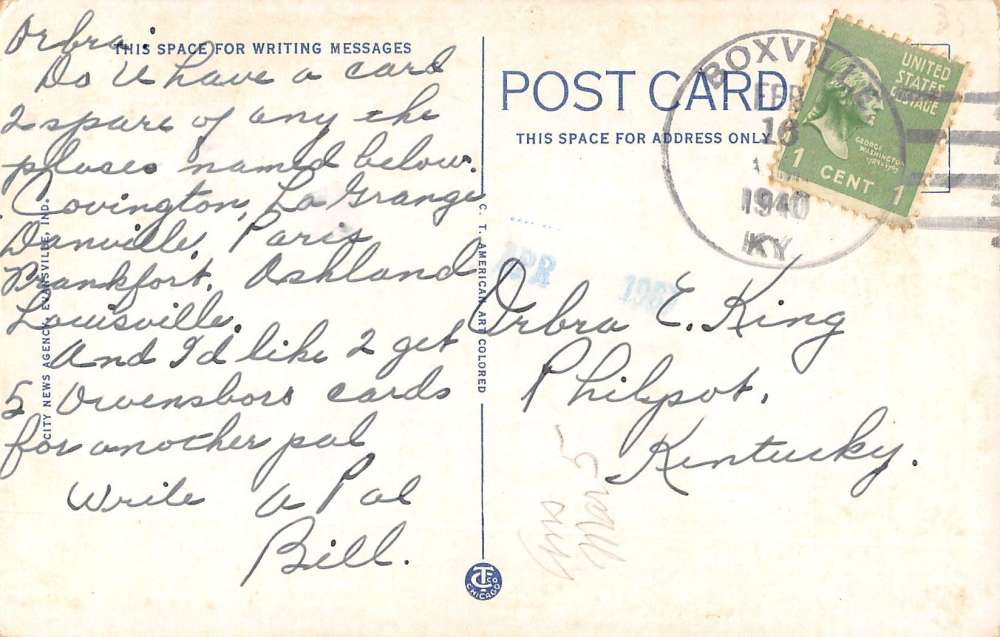 THIS SPACE FOR WRITING MESSAGES
Orbra.
Do U have a card
2 spare of any the
plases named below.
Covington, La Grange
Danville, Paris
Frankfort, Ashland
Louisville.
And I'd like 2 get
5 Owensboro cards
for another pal
Write a Pal
Bill.
CITY NEWS AGENCY, EVANSVILLE, IND.
C. T. AMERICAN ART COLORED
POST CARD
THIS SPACE FOR ADDRESS ONLY
BOXVILLE
FEB
16
1940
KY.
UNITED
STATES
POSTAGE
GEORGE
WASHINGTON
1789-1797
1 CENT 1
APR
Orbra E. King
Philpot,
Kentucky.
Ans
Mar 5
CT CO
CHICAGO